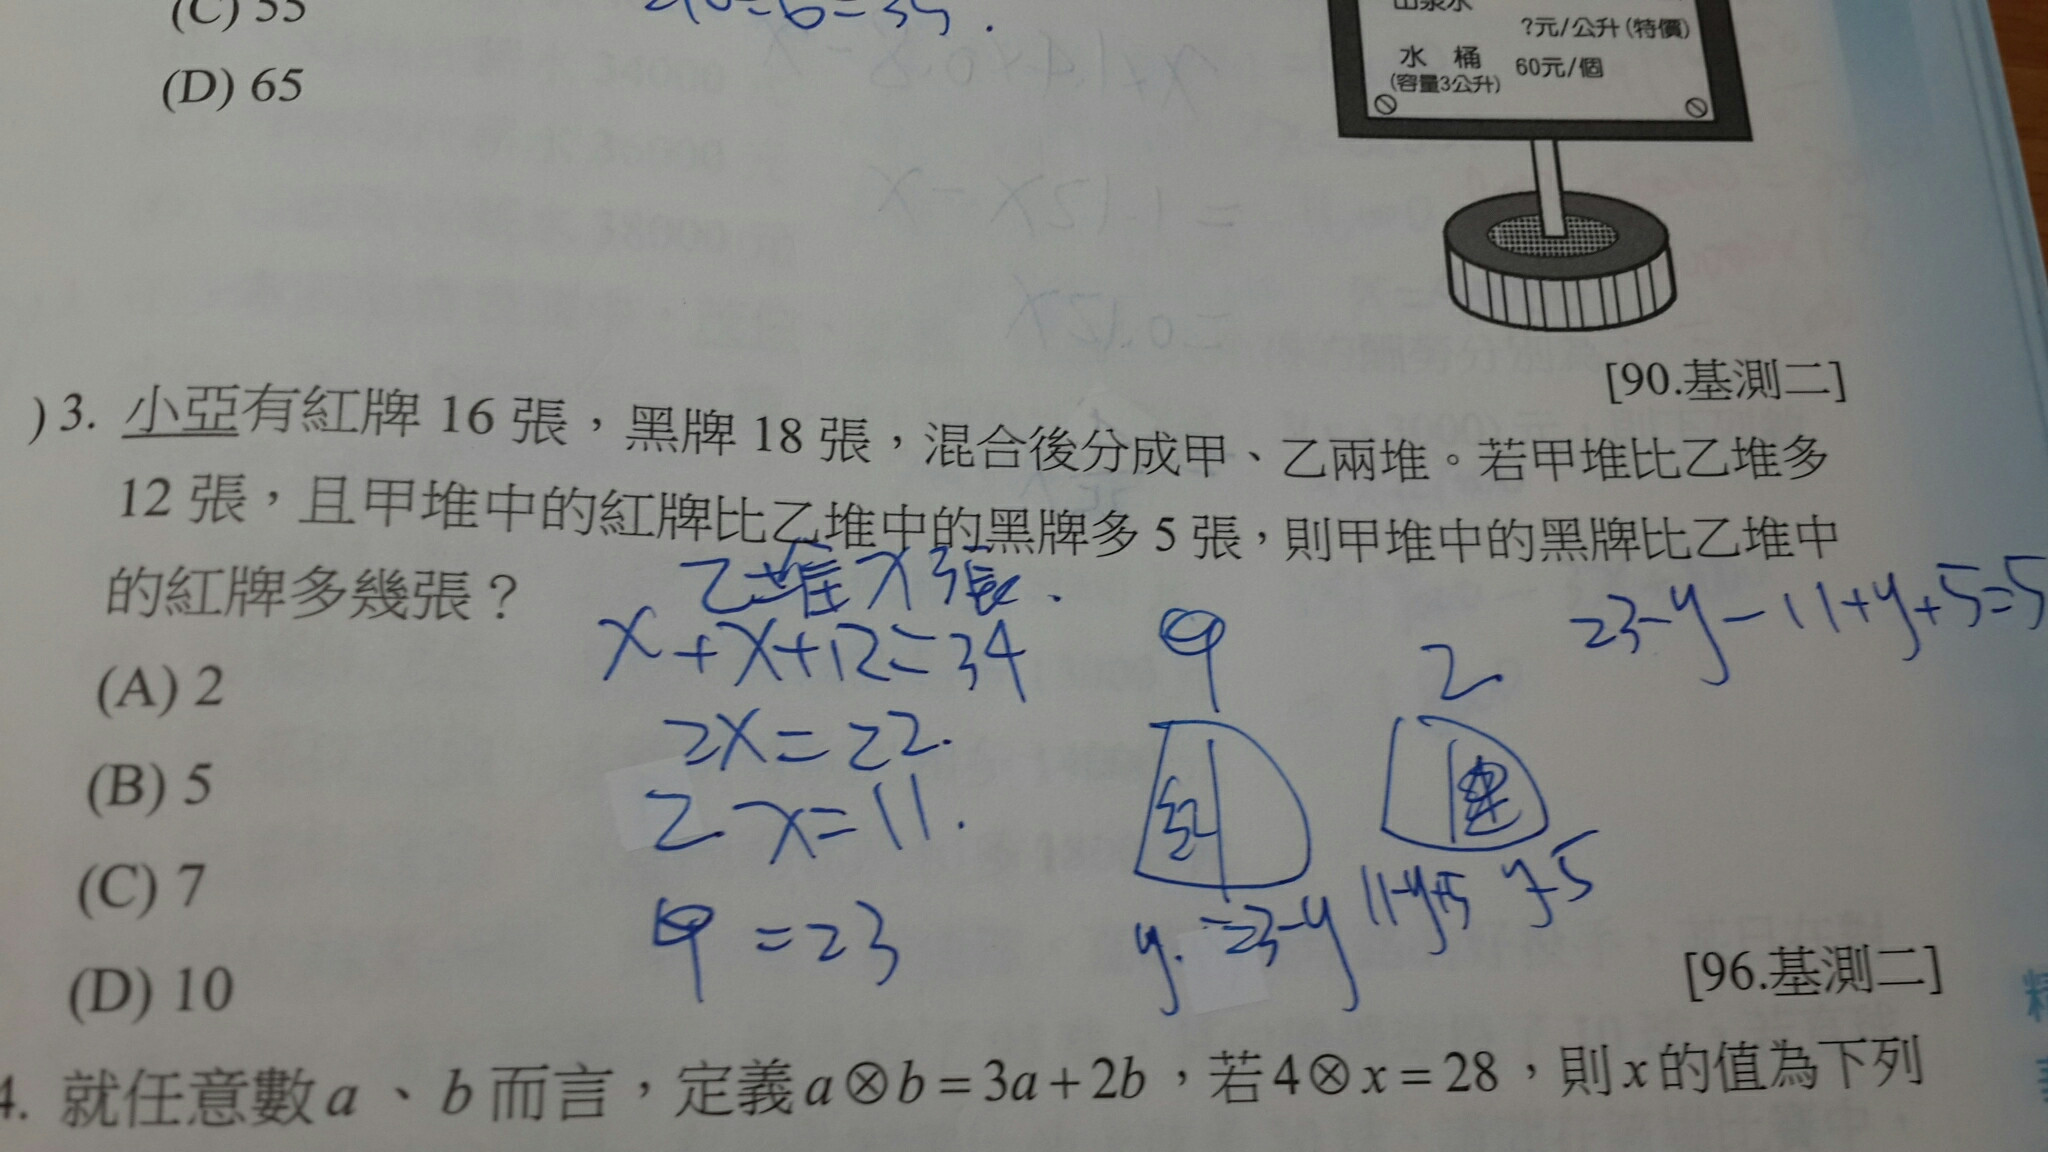 (C) 55
(D) 65
山泉水
?元/公升(特價)
水 桶 60元/個
(容量3公升)
[90.基測二]
)3. 小亞有紅牌 16 張，黑牌 18 張，混合後分成甲、乙兩堆。若甲堆比乙堆多
12 張，且甲堆中的紅牌比乙堆中的黑牌多 5 張，則甲堆中的黑牌比乙堆中
的紅牌多幾張？
乙堆 x 張.
x+x+12=34
2x=22.
乙 x=11.
甲=23
甲
乙
紅
黑
y. =23-y
11-y+5 y-5
23-y-11+y+5=5
(A) 2
(B) 5
(C) 7
(D) 10
[96.基測二]
4. 就任意數a、b而言，定義a⊗b=3a+2b，若4⊗x=28，則x的值為下列